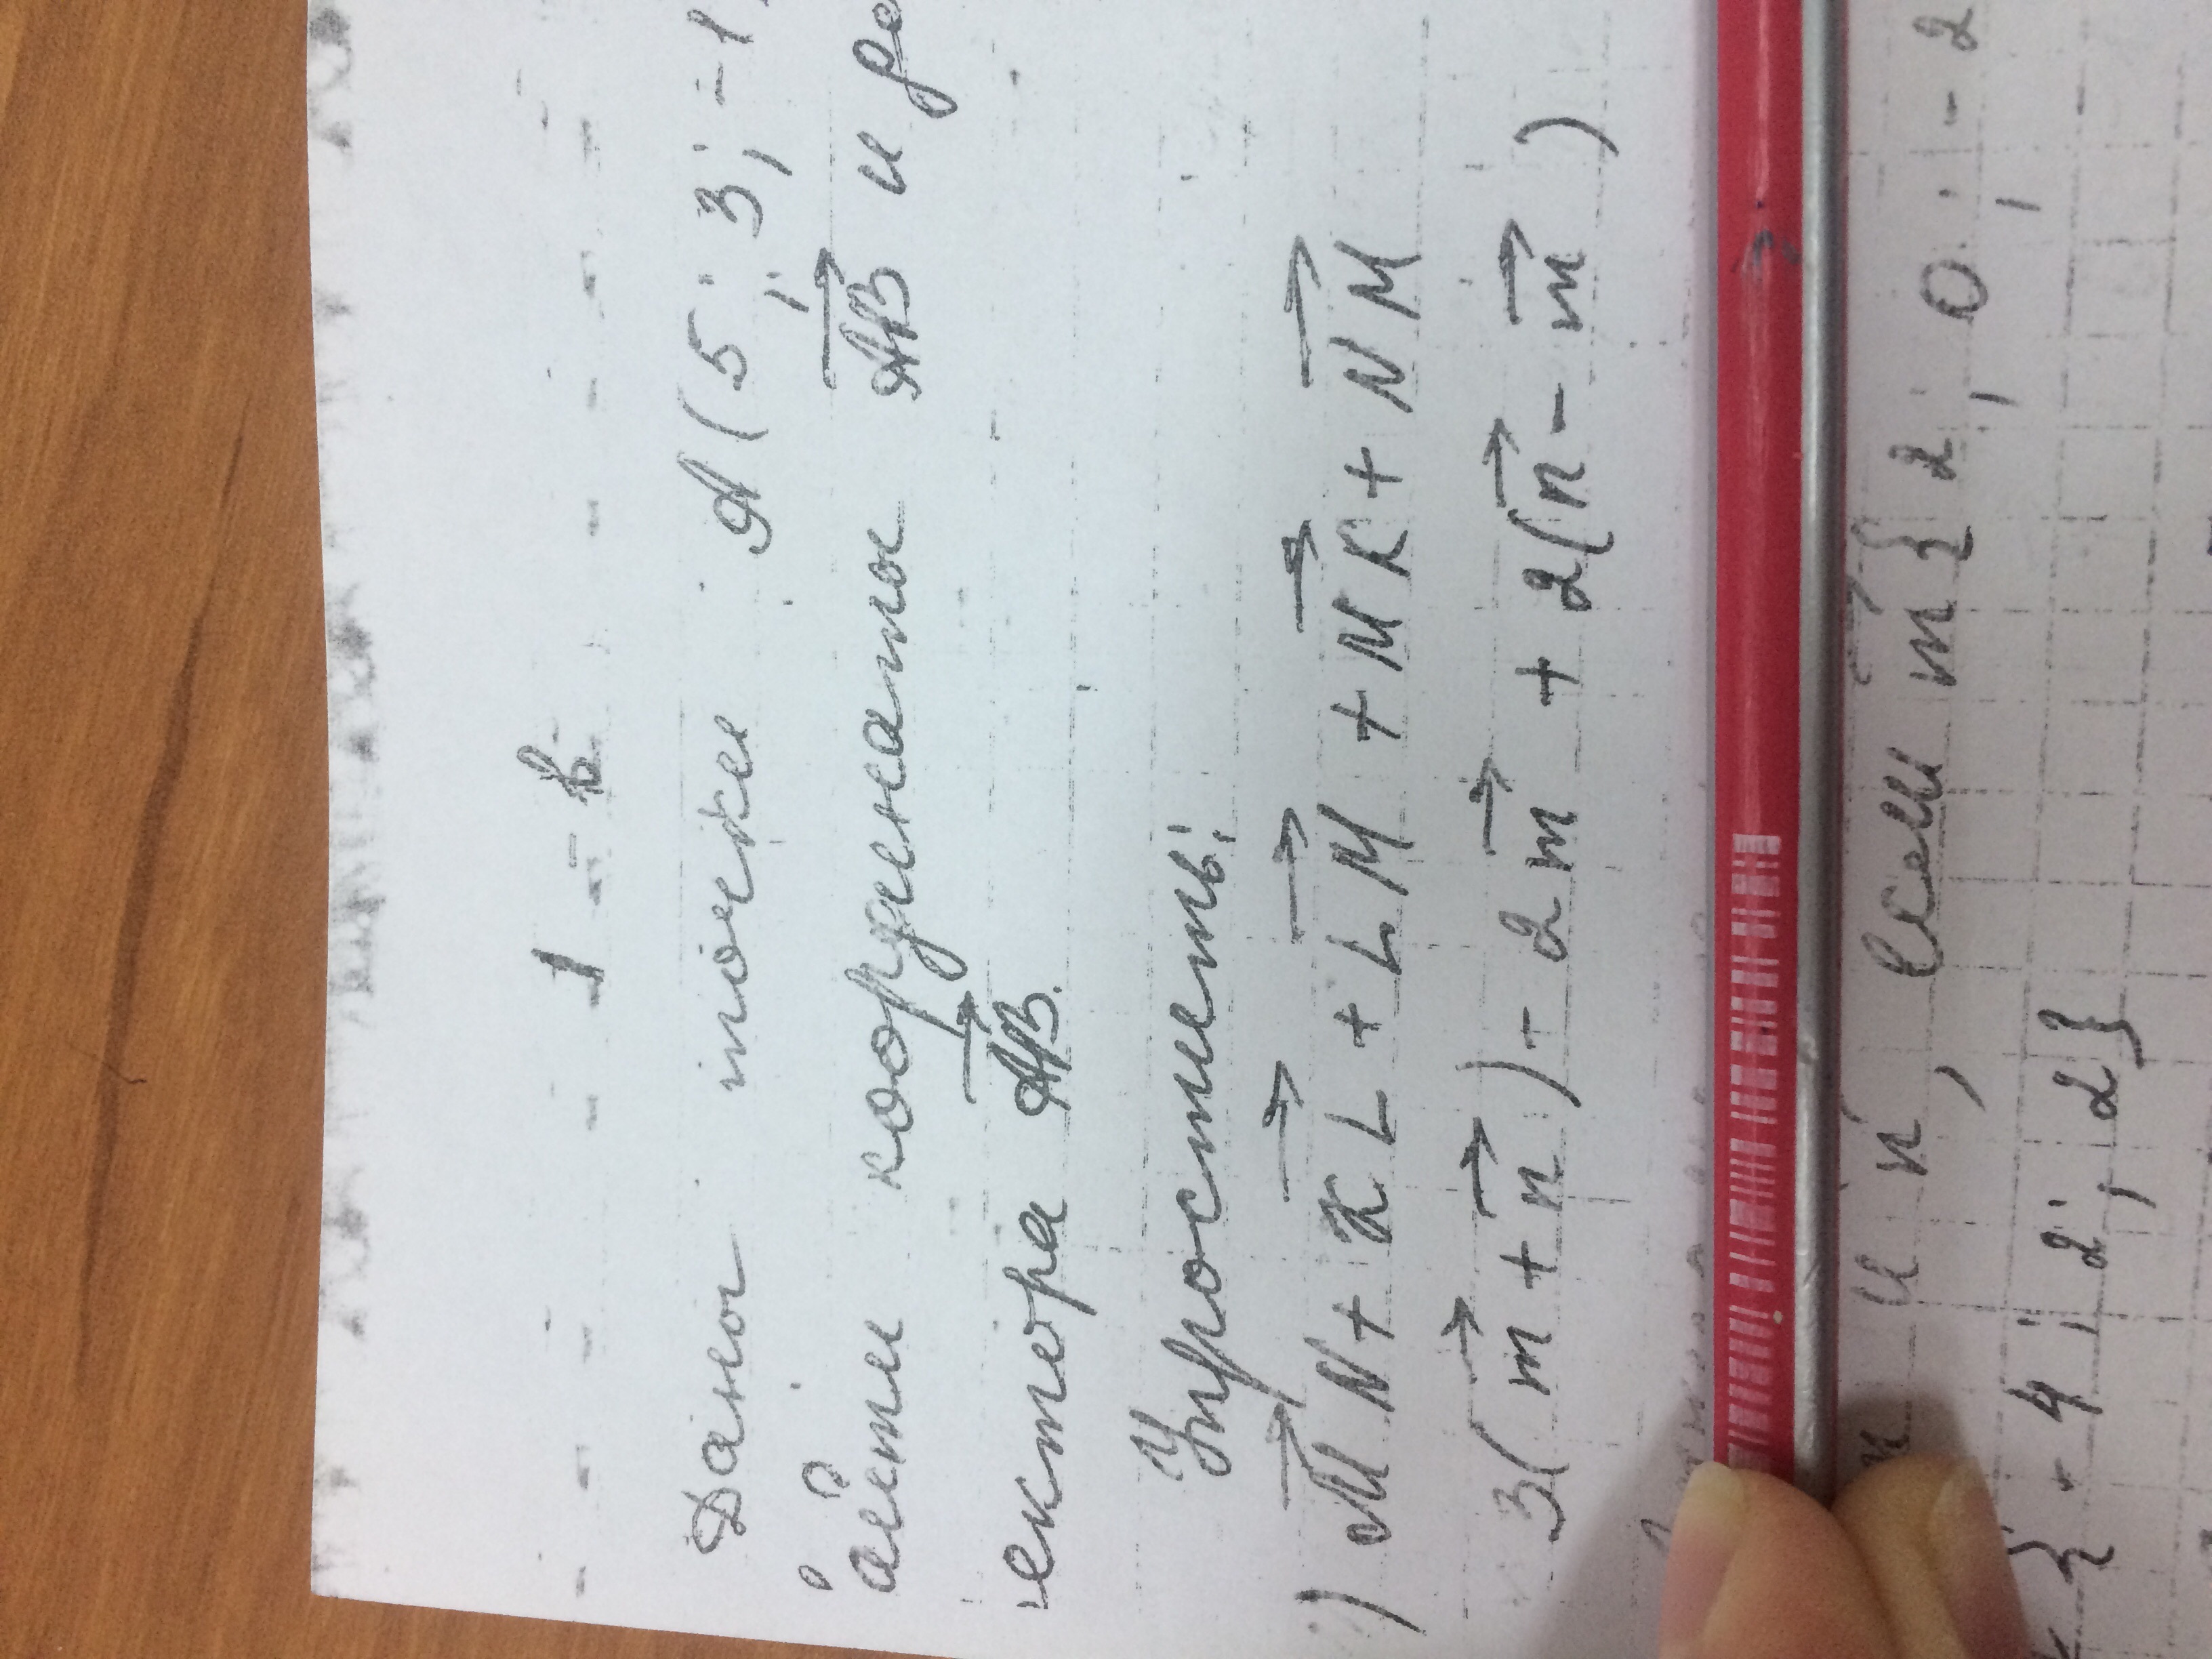 1 - в
Даны точки A(5; 3; -1
айти координаты AB и ра
ектора AB.
Упростить:
) MN + KL + LM + MK + NM
3(m + n) - 2m + 2(n - m)
и n, если m{2; 0; -2
{-4; 2; 2}